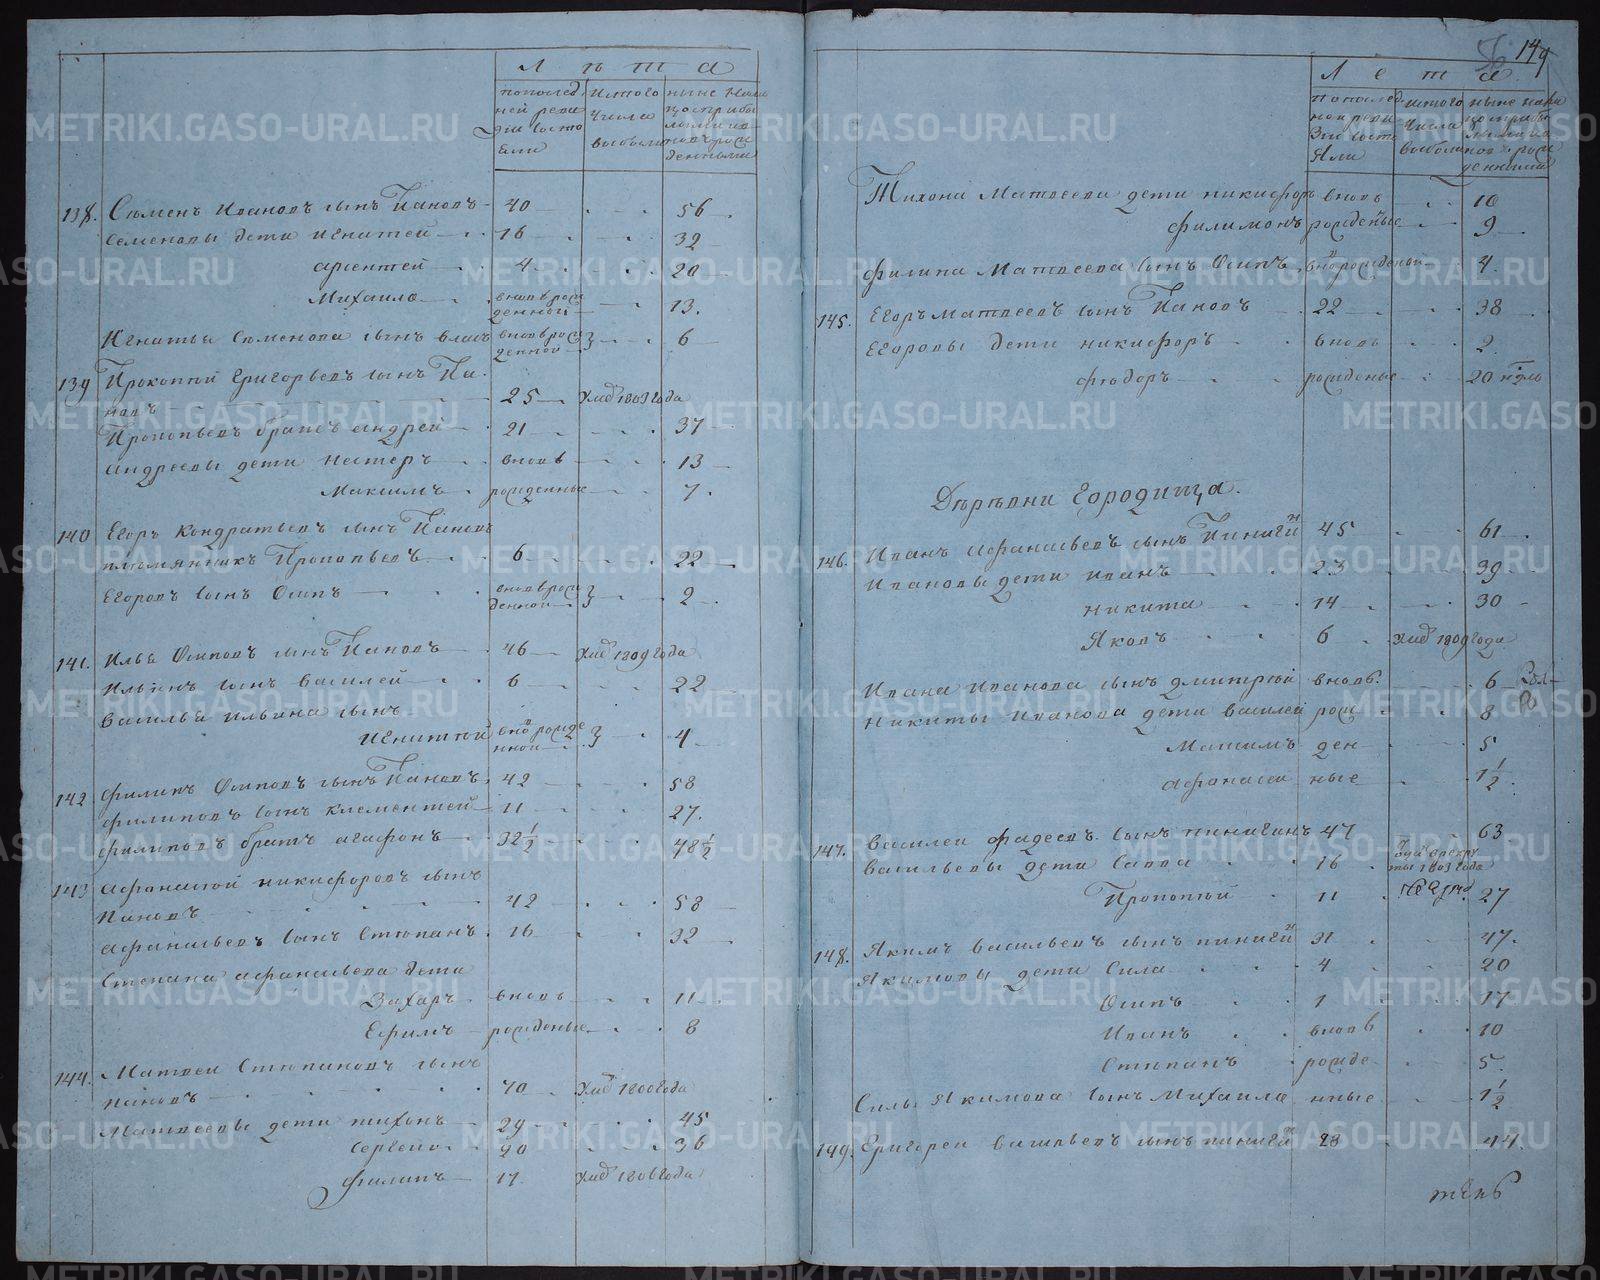 Лѣта
по послед
ней реви
зіи состо
яли
ис того
числа
выбыло
ныне налицо
138. Семенъ Ивановъ сынъ Пановъ 40 56
Семеновы дети Игнатей 16 32
арсентей 4 20
Михаило вновь рожденной 13.
Игнатья Семенова сынъ вновь рожденной 6
139 Прокопий Григорьевъ сынъ Па
новъ 25 1803 года
Прокопьевъ братъ андрей 21 37
андреевы дети Нестеръ вновь 13
Максимъ рожденные 7.
140 Егоръ Кондратьевъ сынъ Пановъ
племянникъ Прокопьевъ 6 22
Егоровъ сынъ Осипъ вновь рожденной 2
141. Илья Осиповъ сынъ Пановъ 46 1809 года
Ильинъ сынъ василей 6 22
Василья Ильина сынъ
Игнатий вновь рожденной 4
142 филипъ Осиповъ сынъ Пановъ 42 58
филиповъ сынъ клементей 11 27.
филиповъ братъ агафонъ 32½ 48½
143 афанасей никифоровъ сынъ
Пановъ 42 58
афанасьевъ сынъ Степанъ 16 32
Степана афанасьева дети
Захаръ вновь 11
Ефимъ рожденые 8
144. Матвеи Степановъ сынъ
Пановъ 70 1800 года
Матвеевы дети тихонъ 29 45
Сергей 20 36
филипъ 17. 1806 года
149
Лета
по послед
ней реви
зіи состо
яли
ис того
числа
выбыло
ныне налицо
Тихона Матвеева дети никифоръ вновь 10
филимонъ рожденые 9
филипа Матвеева сынъ Осипъ вновь рожденой 4.
145. Егоръ Матвеевъ сынъ Пановъ 22 38
Егоровы дети никифоръ вновь 2
фіодоръ рожденые 20 недѣль
Деревни Городища.
146. Иванъ Афанасьевъ сынъ Пинигинъ 45 61
Ивановы дети иванъ 23 39
никита 14 30
Яковъ 6 1809 года
Ивана Иванова сынъ дмитрий вновь 6
Никиты Иванова дети василей рож 8
Максимъ ден 5
афанасеи ные 1½
147. Василеи фадеевъ сынъ пинигинъ 47 63
васильевы дети Савва 16 рекруты 1803 года
Прокопий 11 27
148. Якимъ васильевъ сынъ пинигинъ 31 47.
Якимовы дети Сила 4 20
Осипъ 1 17
Иванъ вновь 10
Степанъ рожде 5.
Силы Якимова сынъ Михаило нные 1½
149. Григореи васильевъ сынъ пинигинъ 28 44.
METRIKI.GASO-URAL.RU